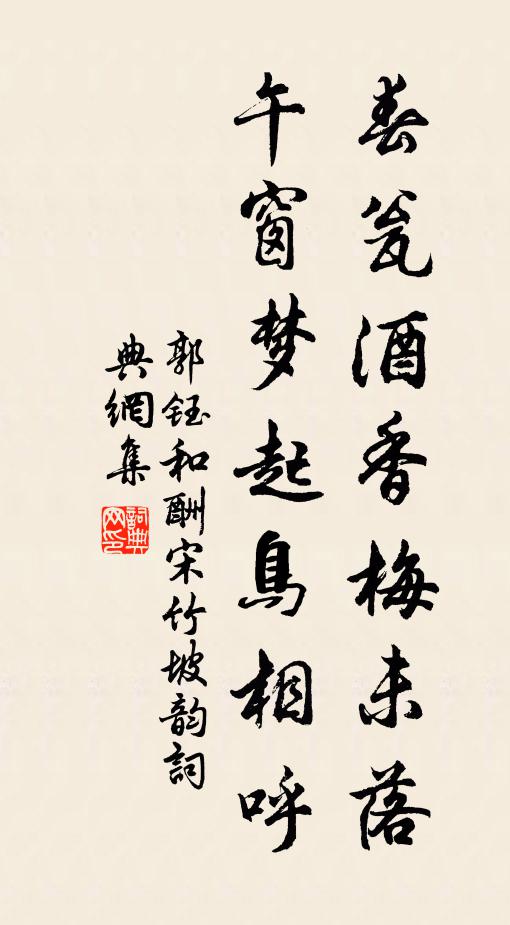 春瓮酒香梅未落
午窗梦起鳥相呼
郭鈺和酬宋竹坡韵詞
典網集
詞典
网印